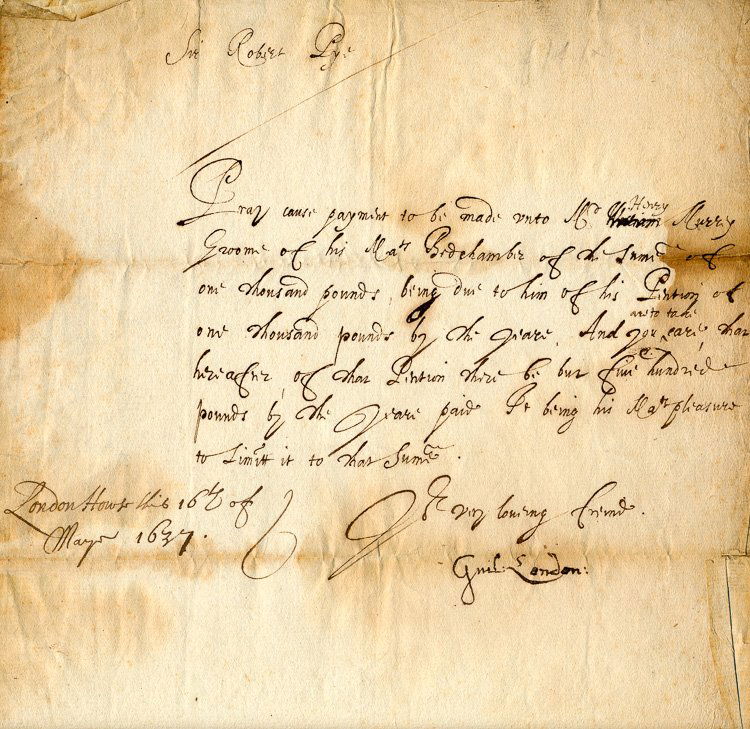 Sir Robert Pye
Pray cause payment to be made vnto Mr William Henry Murrey
Groome of his Mats Bedchamber of the Sume of
one thousand pounds, being due to him of his Pention of
one thousand pounds by the yeare, And you are to take care, that
hereafter, of that Pention there be but five hundred
pounds by the yeare paid It being his Mats pleasure
to Limitt it to that Sume.
London House this 16th of
Maye 1637.
Yor very loveing freind.
Guil: London: